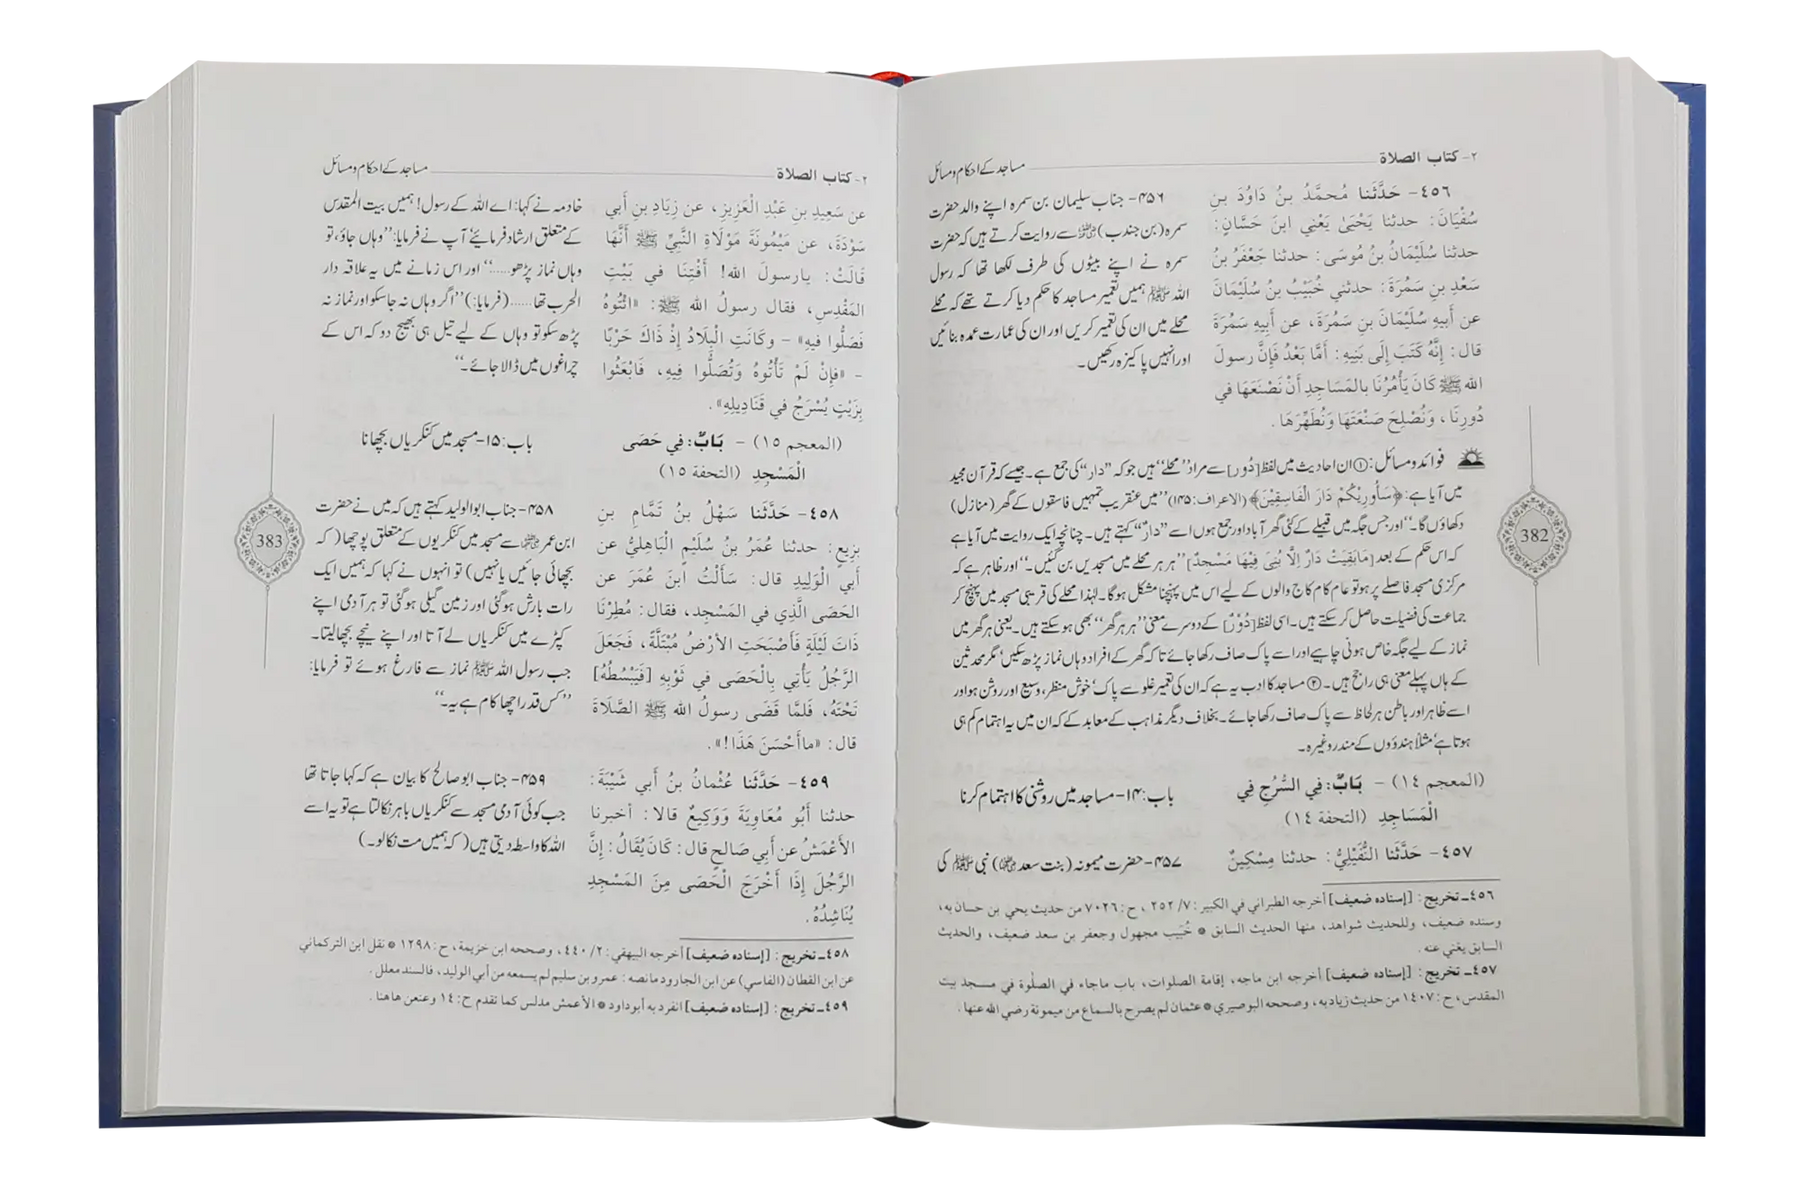 ٢- كتاب الصلاة
مساجد کے احکام و مسائل
٤٥٦- حَدَّثَنا مُحمَّدُ بنُ دَاوُدَ بنِ
سُفْيَانَ: حدثنا يَحْيَىٰ يَعْني ابنَ حَسَّانٍ:
حدثنا سُلَيْمَانُ بنُ مُوسَى: حدثنا جَعْفَرُ بنُ
سَعْدِ بنِ سَمُرَةَ: حدثني خُبَيْبُ بنُ سُلَيْمَانَ
عن أبِيهِ سُلَيْمَانَ بنِ سَمُرَةَ، عن أبِيهِ سَمُرَةَ
قال: إنَّهُ كَتَبَ إلَى بَنِيهِ: أمَّا بَعْدُ فَإنَّ رسولَ
الله ﷺ كَانَ يَأْمُرُنَا بالمَسَاجِدِ أنْ نَصْنَعَهَا في
دُورِنَا، وَنُصْلِحَ صَنْعَتَهَا وَنُطَهِّرَهَا.
۴۵۶- جناب سلیمان بن سمرہ اپنے والد حضرت
سمرہ (بن جندب) ؓ سے روایت کرتے ہیں کہ حضرت
سمرہ نے اپنے بیٹوں کی طرف لکھا تھا کہ رسول
اللہ ﷺ ہمیں تعمیر مساجد کا حکم دیا کرتے تھے کہ محلے
محلے میں ان کی تعمیر کریں اور ان کی عمارت عمدہ بنائیں
اور انہیں پاکیزہ رکھیں۔
فوائد و مسائل: ① ان احادیث میں لفظ [دُور] سے مراد ’’محلے‘‘ ہیں جو کہ ’’دار‘‘ کی جمع ہے۔ جیسے کہ قرآن مجید
میں آیا ہے: ﴿سَأُورِيكُمْ دَارَ الْفَاسِقِيْنَ﴾ (الاعراف:۱۴۵) ’’میں عنقریب تمہیں فاسقوں کے گھر (منازل)
دکھاؤں گا۔‘‘ اور جس جگہ میں قبیلے کے کئی گھر آباد اور جمع ہوں اسے ’’دارٌ‘‘ کہتے ہیں۔ چنانچہ ایک روایت میں آیا ہے
کہ اس حکم کے بعد [مَابَقِيَتْ دَارٌ اِلَّا بُنِيَ فِيْهَا مَسْجِدٌ] ’’ہر ہر محلے میں مسجدیں بن گئیں۔‘‘ اور ظاہر ہے کہ
مرکزی مسجد فاصلے پر ہو تو عام کام کاج والوں کے لیے اس میں پہنچنا مشکل ہوگا۔ لہٰذا محلے کی قریبی مسجد میں پہنچ کر
جماعت کی فضیلت حاصل کر سکتے ہیں۔ اسی لفظ [دُوْرٌ] کے دوسرے معنی ’’ہر ہر گھر‘‘ بھی ہو سکتے ہیں۔ یعنی ہر گھر میں
نماز کے لیے جگہ خاص ہونی چاہیے اور اسے پاک صاف رکھا جائے تاکہ گھر کے افراد وہاں نماز پڑھ سکیں‘ مگر محدثین
کے ہاں پہلے معنی ہی راجح ہیں۔ ② مساجد کا ادب یہ ہے کہ ان کی تعمیر غلو سے پاک‘ خوش منظر، وسیع اور روشن ہو اور
اسے ظاہر اور باطن ہر لحاظ سے پاک صاف رکھا جائے۔ بخلاف دیگر مذاہب کے معابد کے کہ ان میں یہ اہتمام کم ہی
ہوتا ہے‘ مثلاً ہندوؤں کے مندر وغیرہ۔
382
(المعجم ١٤) - بَابٌ: فِي السُّرُجِ فِي
الْمَسَاجِدِ (التحفة ١٤)
باب: ۱۴- مساجد میں روشنی کا اہتمام کرنا
٤٥٧- حَدَّثَنا النُّفَيْلِيُّ: حدثنا مِسْكِينٌ
۴۵۷- حضرت میمونہ (بنت سعد ؓ) نبی ﷺ کی
٤٥٦ـ تخريج: [إسناده ضعيف] أخرجه الطبراني في الكبير: ٧/ ٢٥٢، ح: ٧٠٢٦ من حديث يحيى بن حسان به،
وسنده ضعيف، وللحديث شواهد، منها الحديث السابق * خُبَيب مجهول وجعفر بن سعد ضعيف، والحديث
السابق يغني عنه.
٤٥٧ـ تخريج: [إسناده ضعيف] أخرجه ابن ماجه، إقامة الصلوات، باب ماجاء في الصلوٰة في مسجد بيت
المقدس، ح: ١٤٠٧ من حديث زياد به، وصححه البوصيري * عثمان لم يصرح بالسماع من ميمونة رضي الله عنها.
٢- كتاب الصلاة
مساجد کے احکام و مسائل
عن سَعِيدِ بنِ عَبْدِ الْعَزِيزِ، عن زِيَادِ بنِ أَبي
سَوْدَةَ، عن مَيْمُونَةَ مَوْلَاةِ النَّبيِّ ﷺ أَنَّهَا
قَالَتْ: يارسولَ الله! أَفْتِنَا في بَيْتِ
المَقْدِسِ، فقال رسولُ الله ﷺ: «ائْتُوهُ
فَصَلُّوا فيهِ» - وكَانَتِ الْبِلَادُ إِذْ ذَاكَ حَرْبًا
- «فإنْ لَمْ تَأْتُوهُ وَتُصَلُّوا فِيهِ، فَابْعَثُوا
بِزَيْتٍ يُسْرَجُ في قَنَادِيلِهِ».
خادمہ نے کہا: اے اللہ کے رسول! ہمیں بیت المقدس
کے متعلق ارشاد فرمائیے‘ آپ نے فرمایا: ’’وہاں جاؤ، تو
وہاں نماز پڑھو......‘‘ اور اس زمانے میں یہ علاقہ دار
الحرب تھا...... (فرمایا:) ’’اگر وہاں نہ جا سکو اور نماز نہ
پڑھ سکو تو وہاں کے لیے تیل ہی بھیج دو کہ اس کے
چراغوں میں ڈالا جائے۔‘‘
(المعجم ١٥) - بَابٌ: فِي حَصَى
الْمَسْجِدِ (التحفة ١٥)
باب: ۱۵- مسجد میں کنکریاں بچھانا
٤٥٨- حَدَّثَنا سَهْلُ بنُ تَمَّامِ بنِ
بَزِيعٍ: حدثنا عُمَرُ بنُ سُلَيْمٍ الْبَاهِلِيُّ عن
أبي الْوَلِيدِ قال: سَأَلْتُ ابنَ عُمَرَ عن
الحَصَى الَّذِي في المَسْجِدِ، فقال: مُطِرْنَا
ذَاتَ لَيْلَةٍ فَأَصْبَحَتِ الأَرْضُ مُبْتَلَّةً، فَجَعَلَ
الرَّجُلُ يَأْتِي بِالْحَصَى في ثَوْبِهِ [فَيَبْسُطُهُ]
تَحْتَهُ، فَلمَّا قَضَى رسولُ الله ﷺ الصَّلَاةَ
قال: «ما أَحْسَنَ هَذَا!».
۴۵۸- جناب ابو الولید کہتے ہیں کہ میں نے حضرت
ابن عمر ؓ سے مسجد میں کنکریوں کے متعلق پوچھا (کہ
بچھائی جائیں یا نہیں) تو انہوں نے کہا کہ ہمیں ایک
رات بارش ہوگئی اور زمین گیلی ہوگئی تو ہر آدمی اپنے
کپڑے میں کنکریاں لے آتا اور اپنے نیچے بچھا لیتا۔
جب رسول اللہ ﷺ نماز سے فارغ ہوئے تو فرمایا:
’’کس قدر اچھا کام ہے یہ۔‘‘
383
٤٥٩- حَدَّثَنا عُثْمانُ بنُ أبي شَيْبَةَ:
حدثنا أَبُو مُعَاوِيَةَ وَوَكِيعٌ قالا: أخبرنا
الأعْمَشُ عن أبي صَالحٍ قال: كَانَ يُقَالُ: إنَّ
الرَّجُلَ إذَا أخْرَجَ الْحَصَى مِنَ المَسْجِدِ
يُنَاشِدُهُ.
۴۵۹- جناب ابو صالح کا بیان ہے کہ کہا جاتا تھا
جب کوئی آدمی مسجد سے کنکریاں باہر نکالتا ہے تو یہ اسے
اللہ کا واسطہ دیتی ہیں (کہ ہمیں مت نکالو۔)
٤٥٨ـ تخريج: [إسناده ضعيف] أخرجه البيهقي: ٢/ ٤٤٠، وصححه ابن خزيمة، ح: ١٢٩٨ * نقل ابن التركماني
عن ابن القطان (الفاسي) عن ابن الجارود مانصه: عمرو بن سليم لم يسمعه من أبي الوليد، فالسند معلل.
٤٥٩ـ تخريج: [إسناده ضعيف] انفرد به أبوداود * الأعمش مدلس كما تقدم ح: ١٤ وعنعن هاهنا.